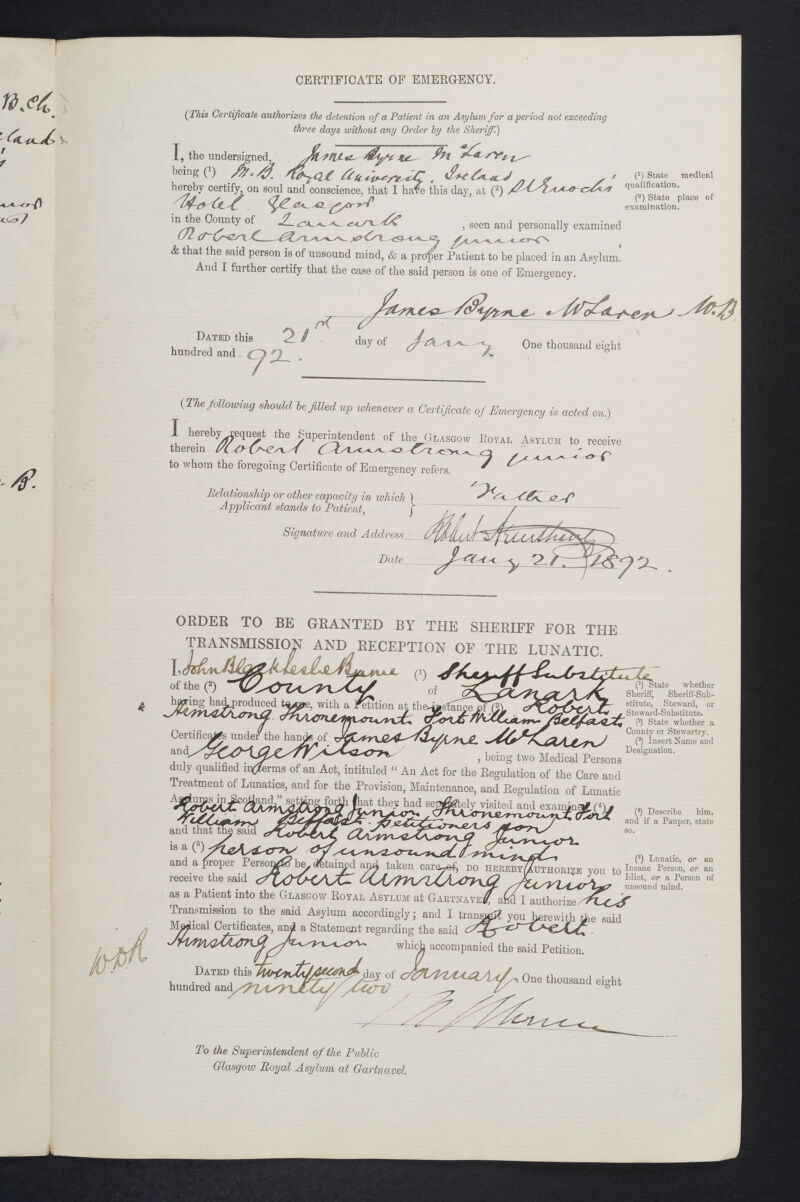 B.Ch.
CERTIFICATE OF EMERGENCY.
(This Certificate authorizes the detention of a Patient in an Asylum for a period not exceeding
three days without any Order by the Sheriff.)
I, the undersigned, James Byrne McLaren
being (1) M.B. Royal University. Ireland
hereby certify, on soul and conscience, that I have this day, at (2) St Enoch's
Hotel Glasgow
in the County of Lanark , seen and personally examined
Robert Armstrong junior ,
& that the said person is of unsound mind, & a proper Patient to be placed in an Asylum.
And I further certify that the case of the said person is one of Emergency.
(1) State medical
qualification.
(2) State place of
examination.
James Byrne McLaren M.B
DATED this 21st day of Jany. One thousand eight
hundred and 92.
(The following should be filled up whenever a Certificate of Emergency is acted on.)
I hereby request the Superintendent of the GLASGOW ROYAL ASYLUM to receive
therein Robert Armstrong junior
to whom the foregoing Certificate of Emergency refers.
Relationship or other capacity in which } Father
Applicant stands to Patient,
Signature and Address Robert Armstrong
Date Jany 21. 1892.
B.
ORDER TO BE GRANTED BY THE SHERIFF FOR THE
TRANSMISSION AND RECEPTION OF THE LUNATIC.
I, John Byrne (1) Sheriff Substitute
of the (2) County of Lanark
having had produced to me, with a Petition at the instance of (3) Robert
Armstrong Thronemount Fort William Belfast
Certificates under the hands of James Byrne McLaren
and George Wilson , being two Medical Persons
duly qualified in terms of an Act, intituled “An Act for the Regulation of the Care and
Treatment of Lunatics, and for the Provision, Maintenance, and Regulation of Lunatic
Asylums in Scotland,” setting forth that they had separately visited and examined (4)
Robert Armstrong Junior Thronemount Fort
William Belfast Petitioners son
and that the said Robert Armstrong Junior
is a (5) person of unsound mind
and a proper Person to be detained and taken care of, DO HEREBY AUTHORIZE you to
receive the said Robert Armstrong Junior
as a Patient into the GLASGOW ROYAL ASYLUM AT GARTNAVEL, and I authorize his
Transmission to the said Asylum accordingly; and I transmit you herewith the said
Medical Certificates, and a Statement regarding the said Robert
Armstrong Junior which accompanied the said Petition.
(1) State whether
Sheriff, Sheriff-Sub-
stitute, Steward, or
Steward-Substitute.
(2) State whether a
County or Stewartry.
(3) Insert Name and
Designation.
(4) Describe him,
and if a Pauper, state
so.
(5) Lunatic, or an
Insane Person, or an
Idiot, or a Person of
unsound mind.
W.D.R
DATED this twenty second day of January One thousand eight
hundred and ninety two
To the Superintendent of the Public
Glasgow Royal Asylum at Gartnavel.